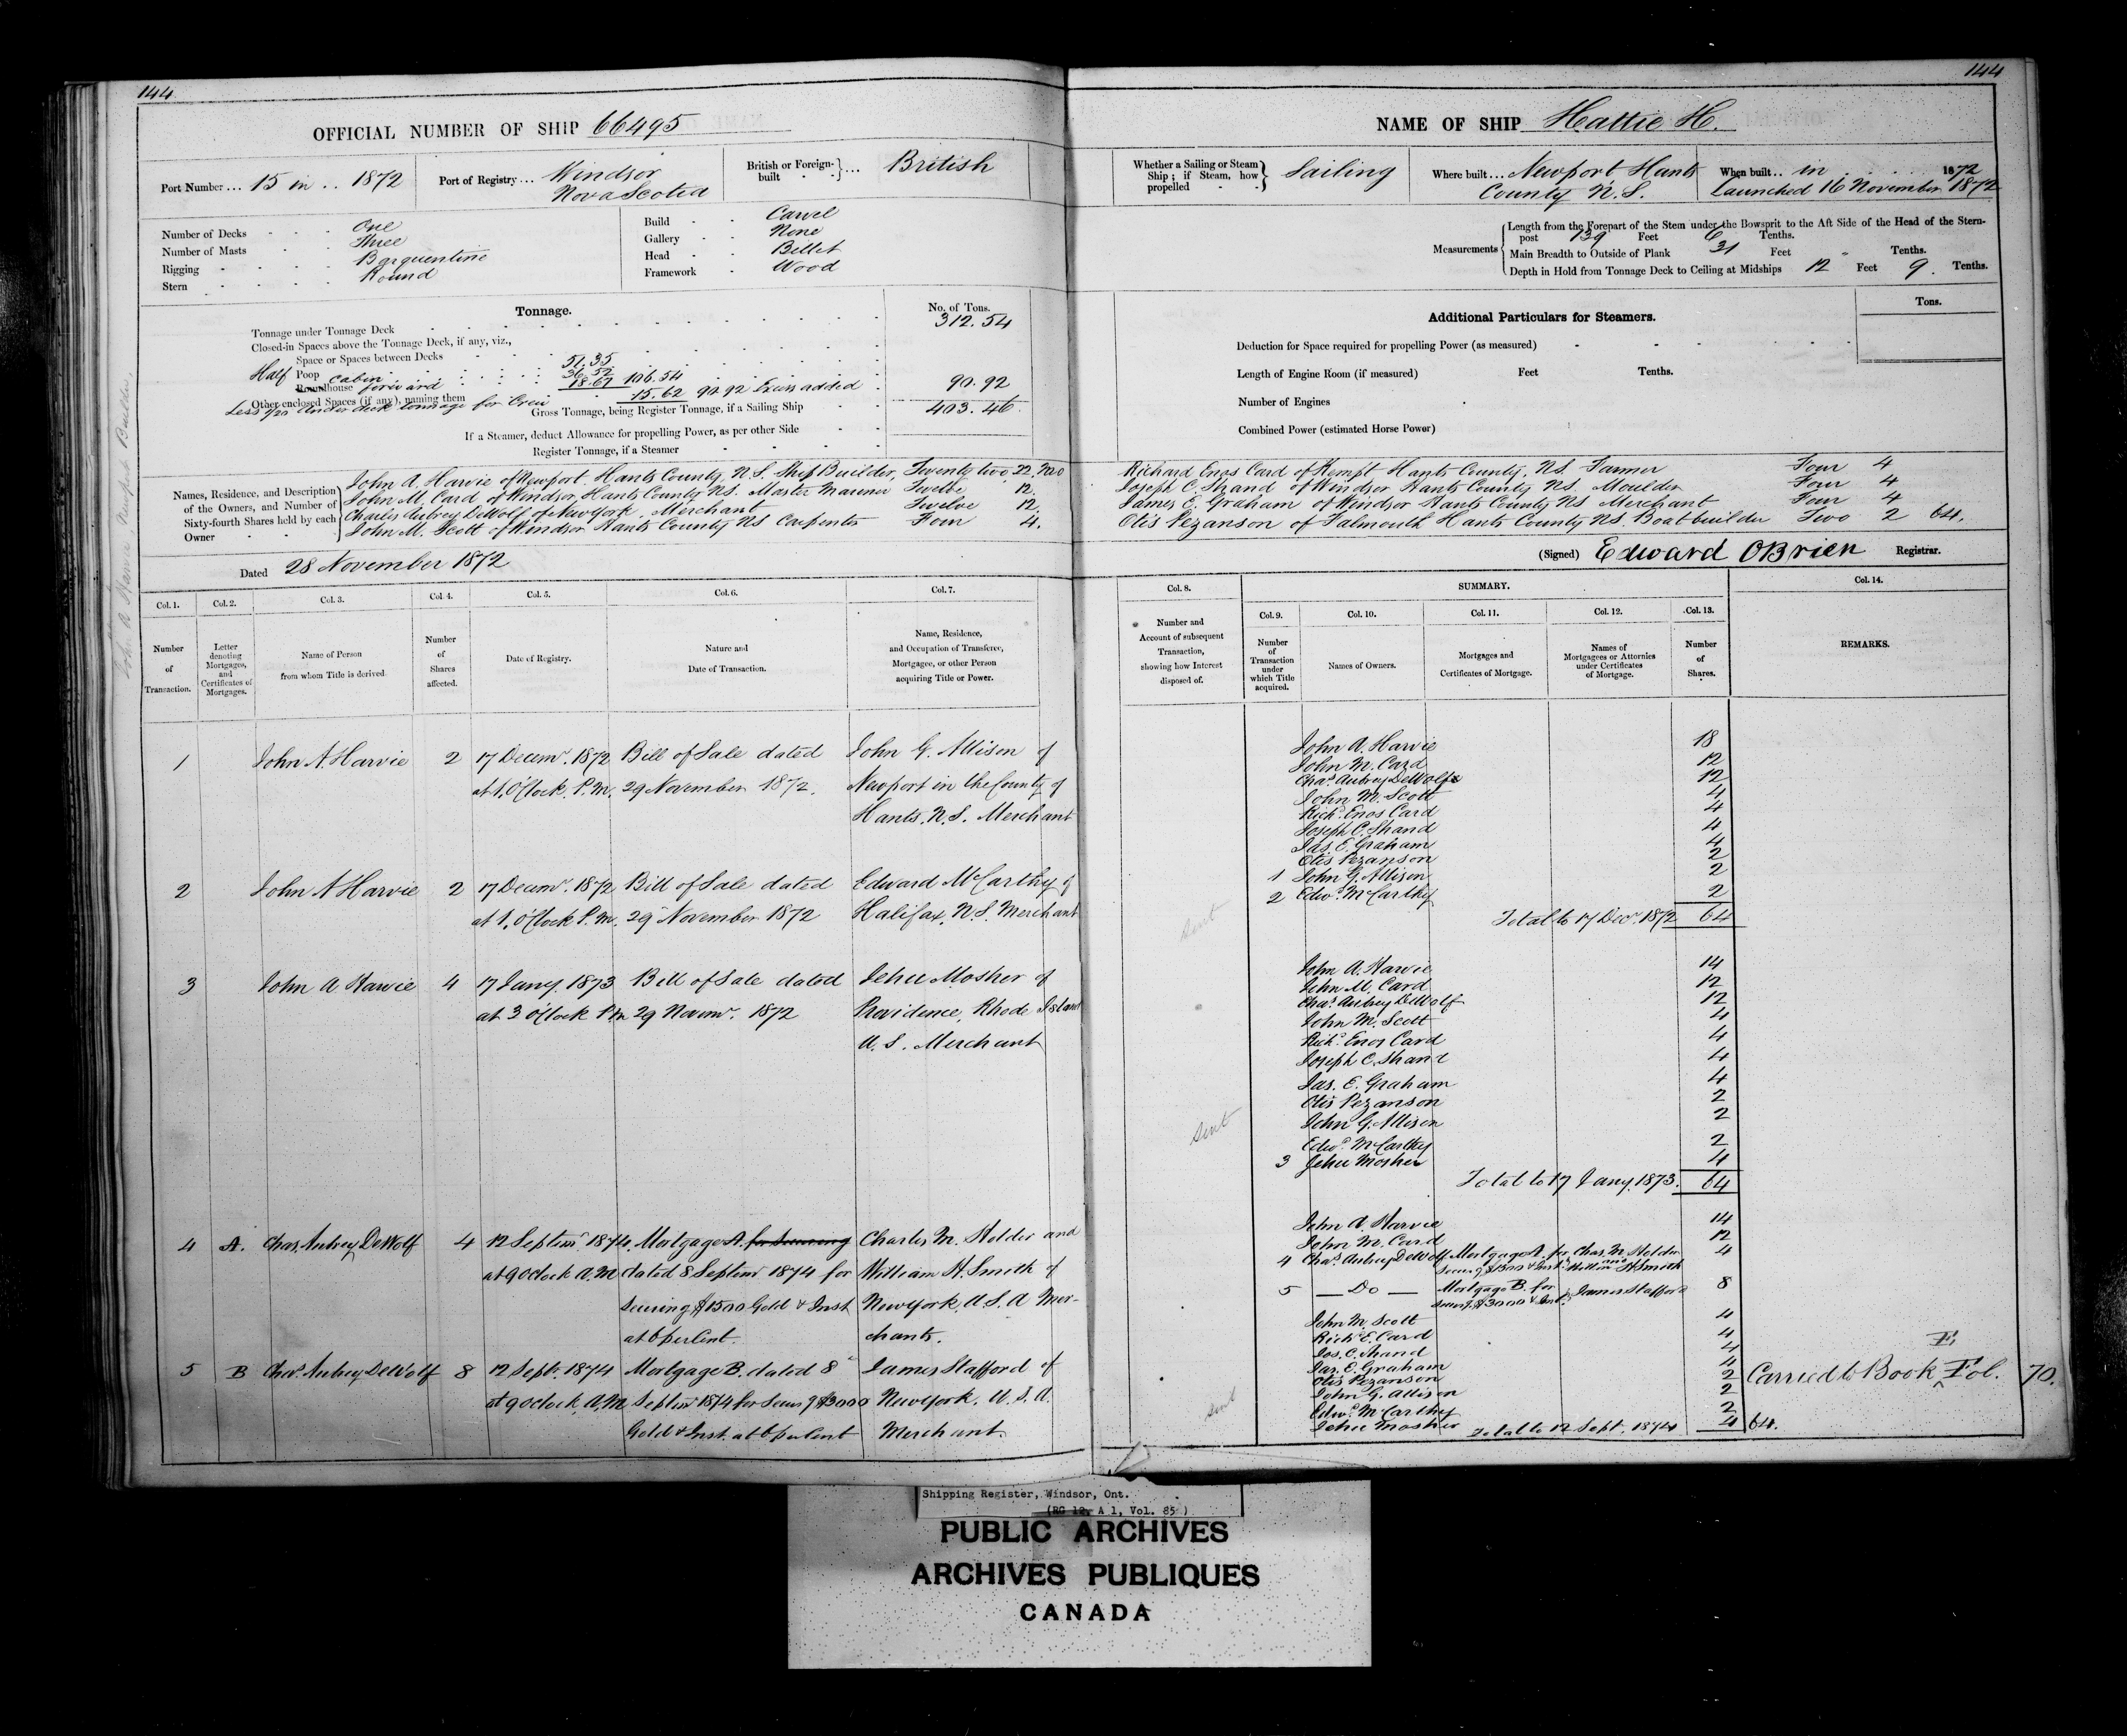 144
144
OFFICIAL NUMBER OF SHIP 66495
Port Number ... 15 in .. 1872
Port of Registry ... Windsor
Nova Scotia
British or Foreign-built ... British
Number of Decks One
Number of Masts Three
Rigging Barquentine
Stern Round
Build Carvel
Gallery None
Head Billet
Framework Wood
Tonnage.
No. of Tons.
Tonnage under Tonnage Deck 312.54
Closed-in Spaces above the Tonnage Deck, if any, viz.,
Space or Spaces between Decks
Half Poop 51.35
Cabin 36.52
Roundhouse forward 18.67 106.54
Other enclosed Spaces (if any), naming them
Less 1/20 Under deck tonnage for Crew 15.62 90.92 Excess added 90.92
Gross Tonnage, being Register Tonnage, if a Sailing Ship 403.46
If a Steamer, deduct Allowance for propelling Power, as per other Side
Register Tonnage, if a Steamer
Names, Residence, and Description of the Owners, and Number of Sixty-fourth Shares held by each Owner
John A. Harvie of Newport, Hants County, N.S. Ship Builder, Twenty two, 22,
John M. Card of Windsor, Hants County NS. Master Mariner Twelve 12.
Charles Aubrey DeWolf of New York, Merchant Twelve 12.
John M. Scott of Windsor Hants County NS Carpenter Four 4.
Dated 28 November 1872
Col. 1.
Col. 2.
Col. 3.
Col. 4.
Col. 5.
Col. 6.
Col. 7.
Number of Transaction.
Letter denoting Mortgages, and Certificates of Mortgages.
Name of Person from whom Title is derived
Number of Shares affected.
Date of Registry.
Nature and Date of Transaction.
Name, Residence, and Occupation of Transferee, Mortgagee, or other Person acquiring Title or Power.
1 John A. Harvie 2 17 Decemr. 1872 Bill of Sale dated John G. Allison of
at 1, O'Clock. P.M. 29 November 1872. Newport in the County of
Hants. N.S. Merchant
2 John A Harvie 2 17 Decemr. 1872 Bill of Sale dated Edward McCarthy of
at 1, O'Clock P.M. 29 November 1872 Halifax, N.S. Merchant
3 John A Harvie 4 17 Jany. 1873 Bill of Sale dated Jehu Mosher of
at 3 O'Clock P.M 29 Novemr. 1872 Providence, Rhode Island
U.S. Merchant
4 A. Chas Aubrey DeWolf 4 12 Septemr 1874. Mortgage A. for Securing Charles M. Holder and
at 9 o'clock A.M dated 8 Septemr 1874 for William H. Smith of
Securing $1500 Gold & Inst New York, U.S. A Mer-
at 6 per Cent. chants.
5 B Chas. Aubrey DeWolf 8 12 Sept. 1874 Mortgage B. dated 8 James Stafford of
at 9 o'clock, A.M. Septemr 1874 for Securg $3000 New York, U.S.A.
Gold & Inst. at 6 per Cent Merchant.
NAME OF SHIP Hattie H.
Whether a Sailing or Steam Ship; if Steam, how propelled Sailing
Where built ... Newport, Hants
County N.S.
When built .. in 1872
Launched 16 November 1872
Measurements
Length from the Forepart of the Stem under the Bowsprit to the Aft Side of the Head of the Stern-
post 139 Feet 6 Tenths.
Main Breadth to Outside of Plank 31 Feet " Tenths.
Depth in Hold from Tonnage Deck to Ceiling at Midships 12 Feet 9. Tenths.
Tons.
Additional Particulars for Steamers.
Deduction for Space required for propelling Power (as measured)
Length of Engine Room (if measured) Feet Tenths.
Number of Engines
Combined Power (estimated Horse Power)
Richard Enos Card of Kempt Hants County, NS. Farmer Four 4
Joseph C. Shand of Windsor Hants County NS. Moulder Four 4
James E. Graham of Windsor Hants County NS Merchant Four 4
Otis Pezanson of Falmouth Hants County NS. Boat builder Two 2 64.
(Signed) Edward OBrien Registrar.
Col. 8.
SUMMARY.
Col. 14.
Col. 9.
Col. 10.
Col. 11.
Col. 12.
Col. 13.
Number and Account of subsequent Transaction, showing how Interest disposed of.
Number of Transaction under which Title acquired.
Names of Owners.
Mortgages and Certificates of Mortgage.
Names of Mortgagees or Attornies under Certificates of Mortgage.
Number of Shares.
REMARKS.
John A. Harvie 18
John M. Card 12
Chas. Aubrey DeWolfe 12
John M. Scott 4
Richd. Enos Card 4
Joseph C. Shand 4
Jas. E. Graham 4
Otis Pezanson 2
1 John G. Allison 2
2 Edwd. McCarthy 2
Sent Total to 17 Decr. 1872 64
John A. Harvie 14
John M. Card 12
Chas. Aubrey DeWolf 12
John M. Scott 4
Richd. Enos Card 4
Joseph C. Shand 4
Jas. E. Graham 4
Otis Pezanson 2
John G. Allison 2
Sent
Edwd. McCarthy 2
3 Jehu Mosher 4
Total to 17 Jany. 1873. 64
John A. Harvie 14
John M. Card 12
4 Chas. Aubrey DeWolf Mortgage A. for Chas. M. Holder 4
Securg $1500 & Inst. and William H Smith
5 Do Mortgage B. for James Stafford 8
Securg. $3000 & Int.
John M. Scott 4
Richd. E. Card 4
Jos. C. Shand 4
Jas. E. Graham 4
Otis Pezanson 2
John G. Allison 2
Edwd. McCarthy 2
Jehu Mosher 4 64.
Total to 12 Sept. 1874
Sent
Carried to Book E Fol. 70.
Shipping Register, Windsor, Ont.
(RG 12, A 1, Vol. 85)
PUBLIC ARCHIVES
ARCHIVES PUBLIQUES
CANADA